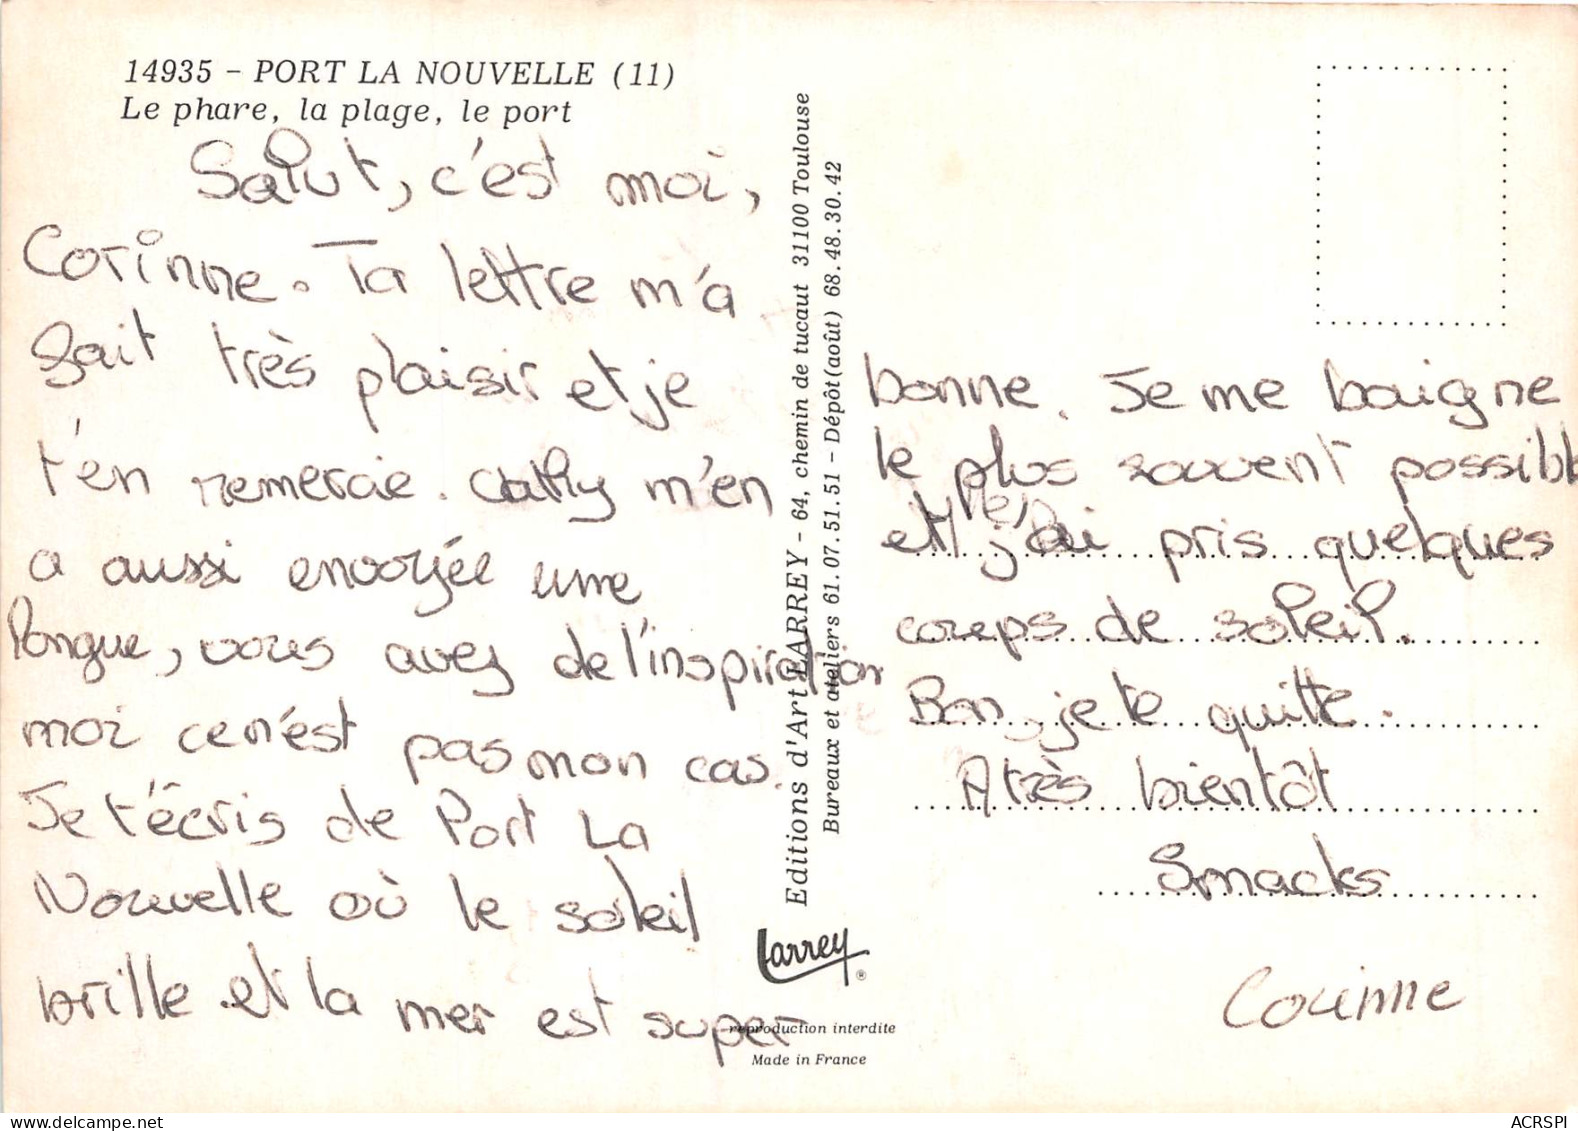 14935 - PORT LA NOUVELLE (11)
Le phare, la plage, le port
Salut, c'est moi,
Corinne. Ta lettre m'a
fait très plaisir et je
t'en remercie. Cathy m'en
a aussi envoyée une
longue, vous avez de l'inspiration
moi ce n'est pas mon cas.
Je t'écris de Port La
Nouvelle où le soleil
brille et la mer est super
bonne. Je me baigne
le plus souvent possible
et j'ai pris quelques
coups de soleil.
Bon, je te quitte.
A très bientôt
Smacks
Corinne
Editions d'Art LARREY - 64, chemin de tucaut 31100 Toulouse
Bureaux et ateliers 61.07.51.51 - Dépôt (août) 68.48.30.42
Larrey ®
reproduction interdite
Made in France
delcampe.net
ACRSPI